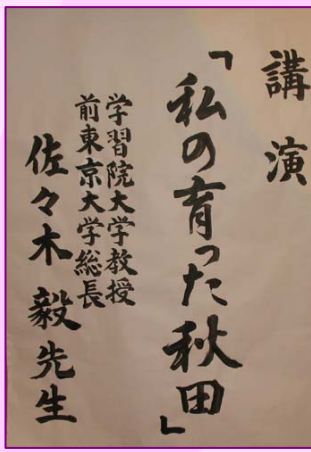 講演
「私の育った秋田」
学習院大学教授
前東京大学総長
佐々木毅先生